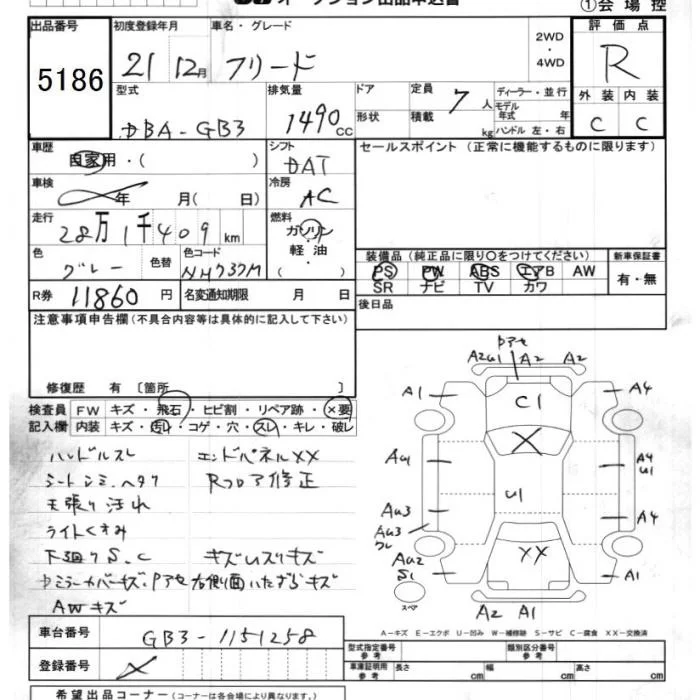 オークション出品申込書
①会場控
出品番号 初度登録年月 車名・グレード 2WD・4WD 評価点
5186 21 12月 フリード R
型式 排気量 ドア 定員 7人 ディーラー・並行 外装 内装
DBA-GB3 1490cc 形状 積載 kg モデル年式 年 ハンドル 左・右 C C
車歴 自家用・( ) シフト DAT セールスポイント (正常に機能するものに限ります)
車検 年 月( 日) 冷房 AC
走行 28万1千409km 燃料 ガソリン・軽油・( )
装備品 (純正品に限り○をつけてください) 新車保証書
色 グレー 色替 色コード NH737M PS PW ABS エアB AW 有・無
SR ナビ TV カワ
R券 11860円 名変通知期限 月 日 後日品
注意事項申告欄(不具合内容等は具体的に記入して下さい)
修復歴 有 [箇所 ]
検査員 FW キズ・飛石・ヒビ割・リペア跡・×要
記入欄 内装 キズ・汚れ・コゲ・穴・スレ・キレ・破レ
ハンドルスレ エンドパネルXX
シートシミ.ヘタリ Rフロア修正
天張り汚れ
ライトくすみ
下廻りS.C キズいスリキズ
アセ右側面いたずらキズ
AWキズ
Pアセ
A2U1 A2 A2
A1 C1 A4
X
AU1 A4U1
U1
AU3 A4
AU3
AU2 S1 XX A1
スペア
A2 A1
A-キズ E-エクボ U-凹み W-補修跡 S-サビ C-腐食 XX-交換済
車台番号 GB3-1151258
型式指定番号 参考 類別区分番号 参考
登録番号
車庫証明用 参考 長さ cm 幅 cm 高さ cm
希望出品コーナー (コーナーは各会場により異なります。)